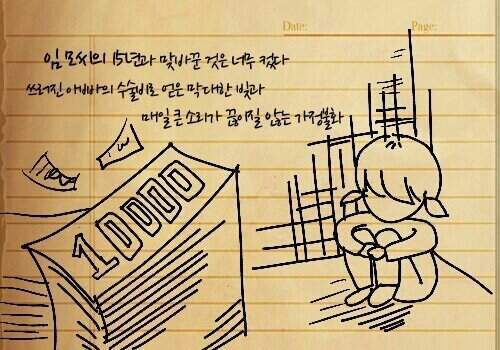 Date: Page:
임 모씨의 15년과 맞바꾼 것은 너무 컸다
쓰러진 아빠의 수술비로 얻은 막대한 빚과
매일 큰 소리가 끊이질 않는 가정불화
10000